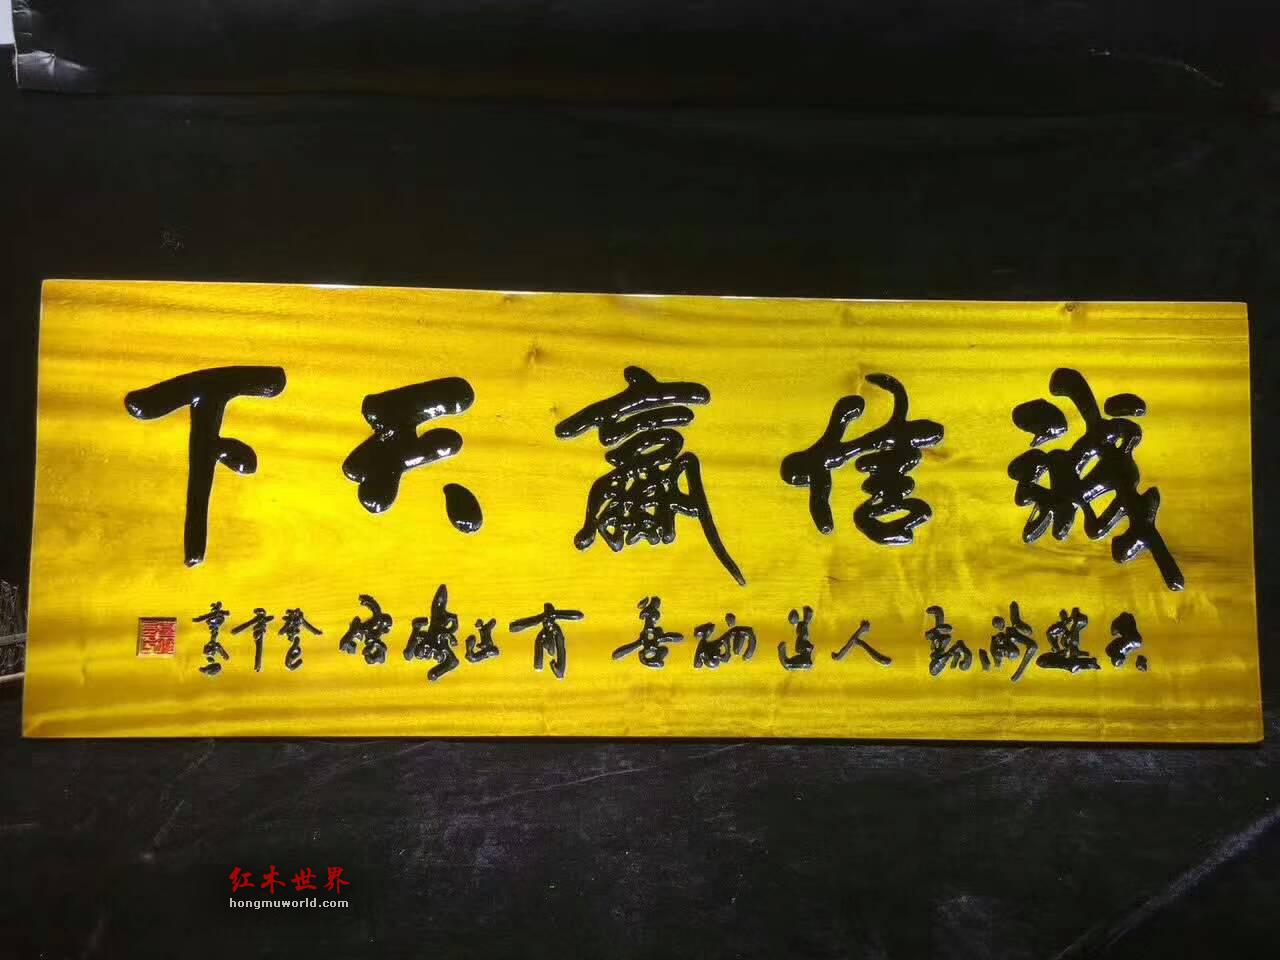 誠信贏天下
天道酬勤 人道酬善 商道酬信 癸巳年
红木世界
hongmuworld.com